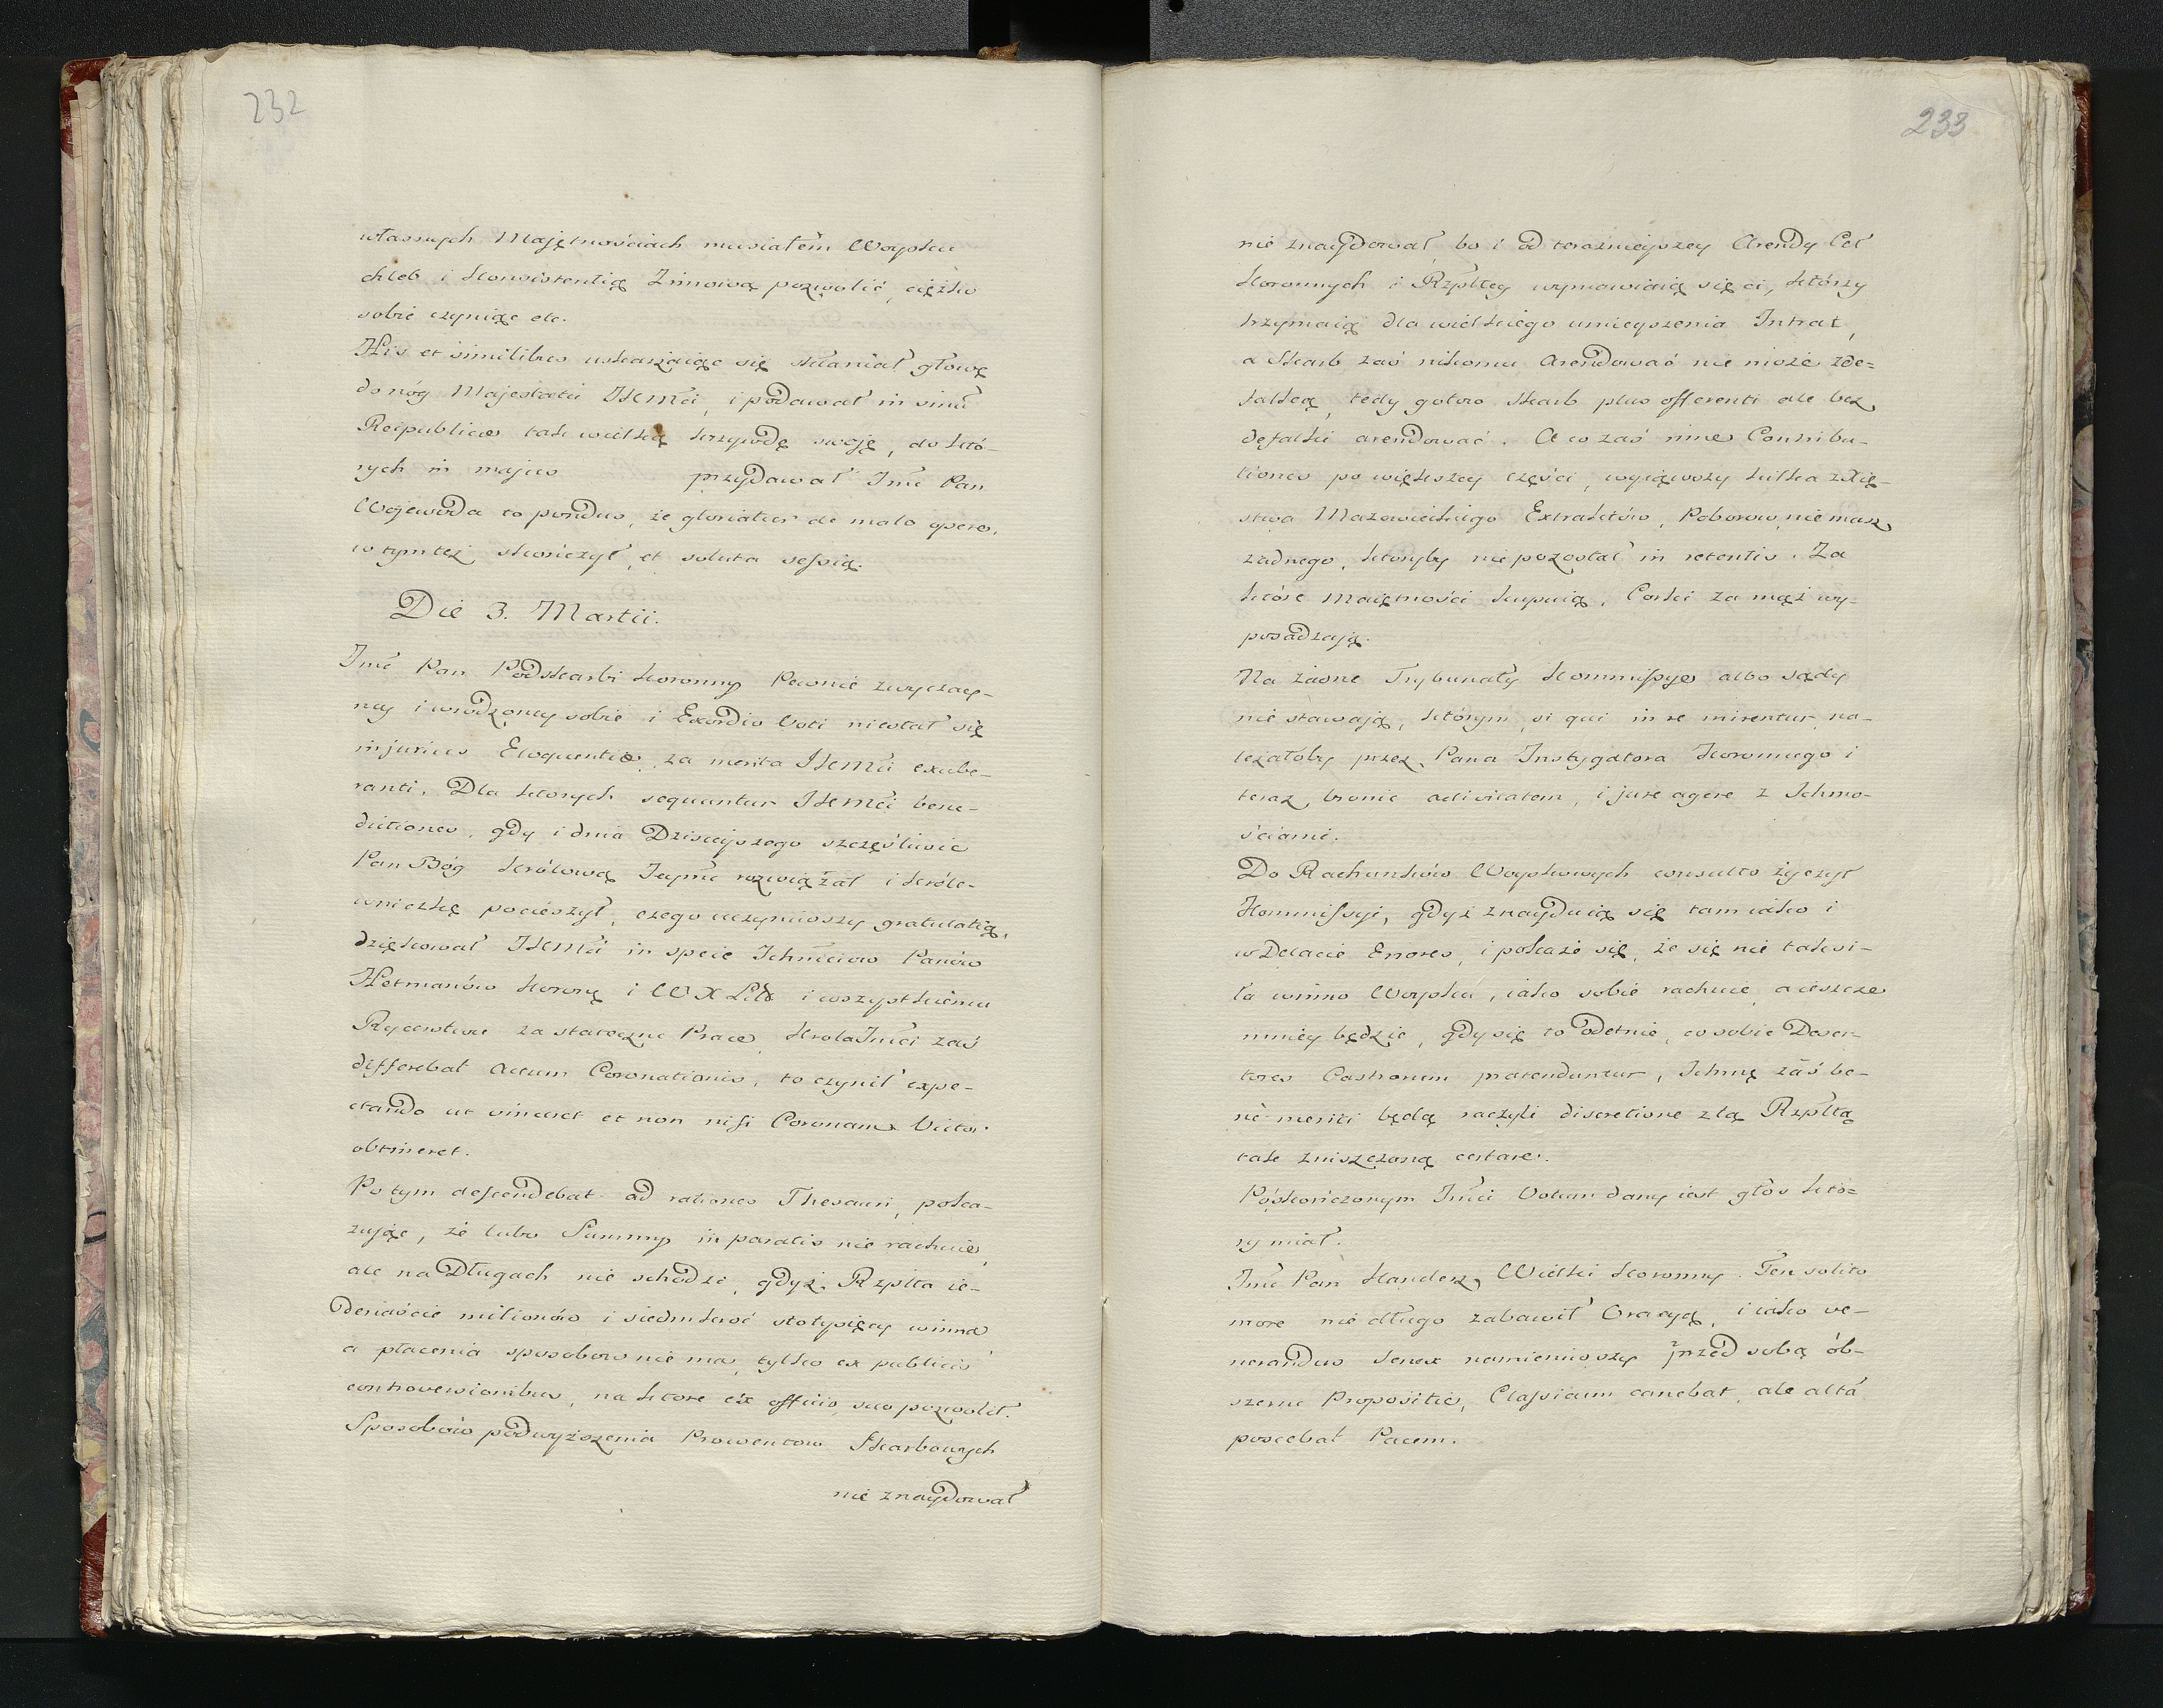 232
własnych Majętnościach musiałem Woysku
chleb i Konsistentią Zimową pozwolić, ciężko
sobie czyniąc etc.
His et similibus uskarżaiąc się skłaniał głowę
do nóg Majestatu JKMći, i podawał in sinū
Reipublicæ tak wielką krzywdę swoję, do któ-
rych in majus przydawał Jmć Pan
Wojewoda to pondus, że gloriatur de malo opere,
w tym też skończył, et soluta sessia.
Die 3. Martii.
Jmć Pan Podskarbi Koronny Pewnie zwyczay-
ney i wrodzoney sobie i Exordio Voti niestał się
injurius Eloquentiæ, za merita JKMći exube-
ranti. Dla ktorych sequuntur JKMći bene-
dictiones, gdy i dnia Dzisieyszego szczęśliwie
Pan Bóg Królową Jeymć rozwiązał i Króle-
wniczkę pocieszył, czego uczyniwszy gratulatią,
dziękował JKMći in specie Ichmćiow Panów
Hetmanów Korony i W X Litt i wszystkiemu
Rycerstwu za stateczne Prace, Krola Jmći zaś
differebat actum Coronationis, to czynił expe-
ctando ut vinceret et non nisi Coronam Victor
obtineret.
Po tym descendebat ad rationes Thesauri, poka-
zując, że lubo Summy in paratis nie rachuie,
ale na Długach nie schodzi, gdyż Rzplta ie-
denaście milionów i siedmkroć stotysięcy winna
a płacenia sposobow nie ma, tylko ex publicis
controversionibus, na ktore ex officio suo pozwolił.
Sposobów podwyższenia Prowentow Skarbowych
nie znaydował
233
nie znaydował, bo i od teraźnieyszey Arendy Ceł
Koronnych i Rzpltey wymawiaią się ci, którzy
trzymaią dla wielkiego umieyszenia Intrat,
a Skarb zaś nikomu Arendować nie może z de-
falką, tedy gotow Skarb plus offerenti ale bez
defalki arendować. A co zaś inne Contribu-
tiones po większey części, wyiąwszy kilka z Xię-
stwa Mazowieckiego Extraktów, Poborow nie masz
żadnego, któryby nie pozostał in retentis. Za
które maiętności kupuią, Corki za mąż wy-
posadzają.
Na żadne Trybunały Kommissye albo sądy
nie stawają, którym, si qui in re mirentur na-
leżałoby przez Pana Instygatora Koronnego i
teraz bronić activitatem, i jure agere z Ichmo-
ściami.
Do Rachunków Woyskowych consulto życzył
Kommissyi, gdyż znayduią się tam iako i
w Delacie Errores, i pokaże się, że się nie tak wi-
ła winno Woysku, iako sobie rachuie, a ieszcze
mniey będzie, gdy się to odetnie, co sobie Deser-
tores Castrorum prætenduntur, Ichmć zaś be-
ne-meriti będą raczyli discretione z tą Rzpltą
tak zniszczoną certare.
Poskończonym Jmći Votum dany iest głos któ-
ry miał.
Jmć Pan Kanclerz Wielki Koronny. Ten solito
more nie długo zabawił Oracyą, i iako ve-
nerandus Senex namieniwszy przed sobą ób-
szerne Propositie, Classicum canebat, ale alta
poscebat Pacem.